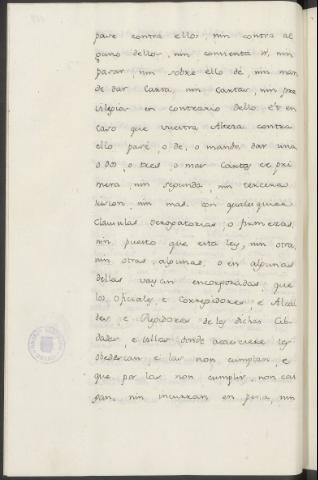 pare contra ello, nin contra al
guno dello, nin consienta ir, nin
parar, nin sobre ello dé, nin man
de dar Carta, nin Cartas, nin pre
vilegios en contrario dello, e si en
caso que vuestra Alteza contra
ello pare, o de, o mande dar una
o dos, o tres, o mas Cartas de pri
mera, nin segunda, nin tercera
Jusion, nin mas, con qualesquier
Clausulas derogatorias, o firmezas,
nin puesto que esta ley, nin otra,
nin otras algunas, o en algunas
dellas vayan encorporadas, que
los Oficiales, e Corregidores e Alcal
des, e Regidores de las dichas Cib
dades, e villas donde acaesciere ley
obedezcan, e las non cumplan, e
que por las non cumplir, non cai
gan, nin incurran en pena, nin